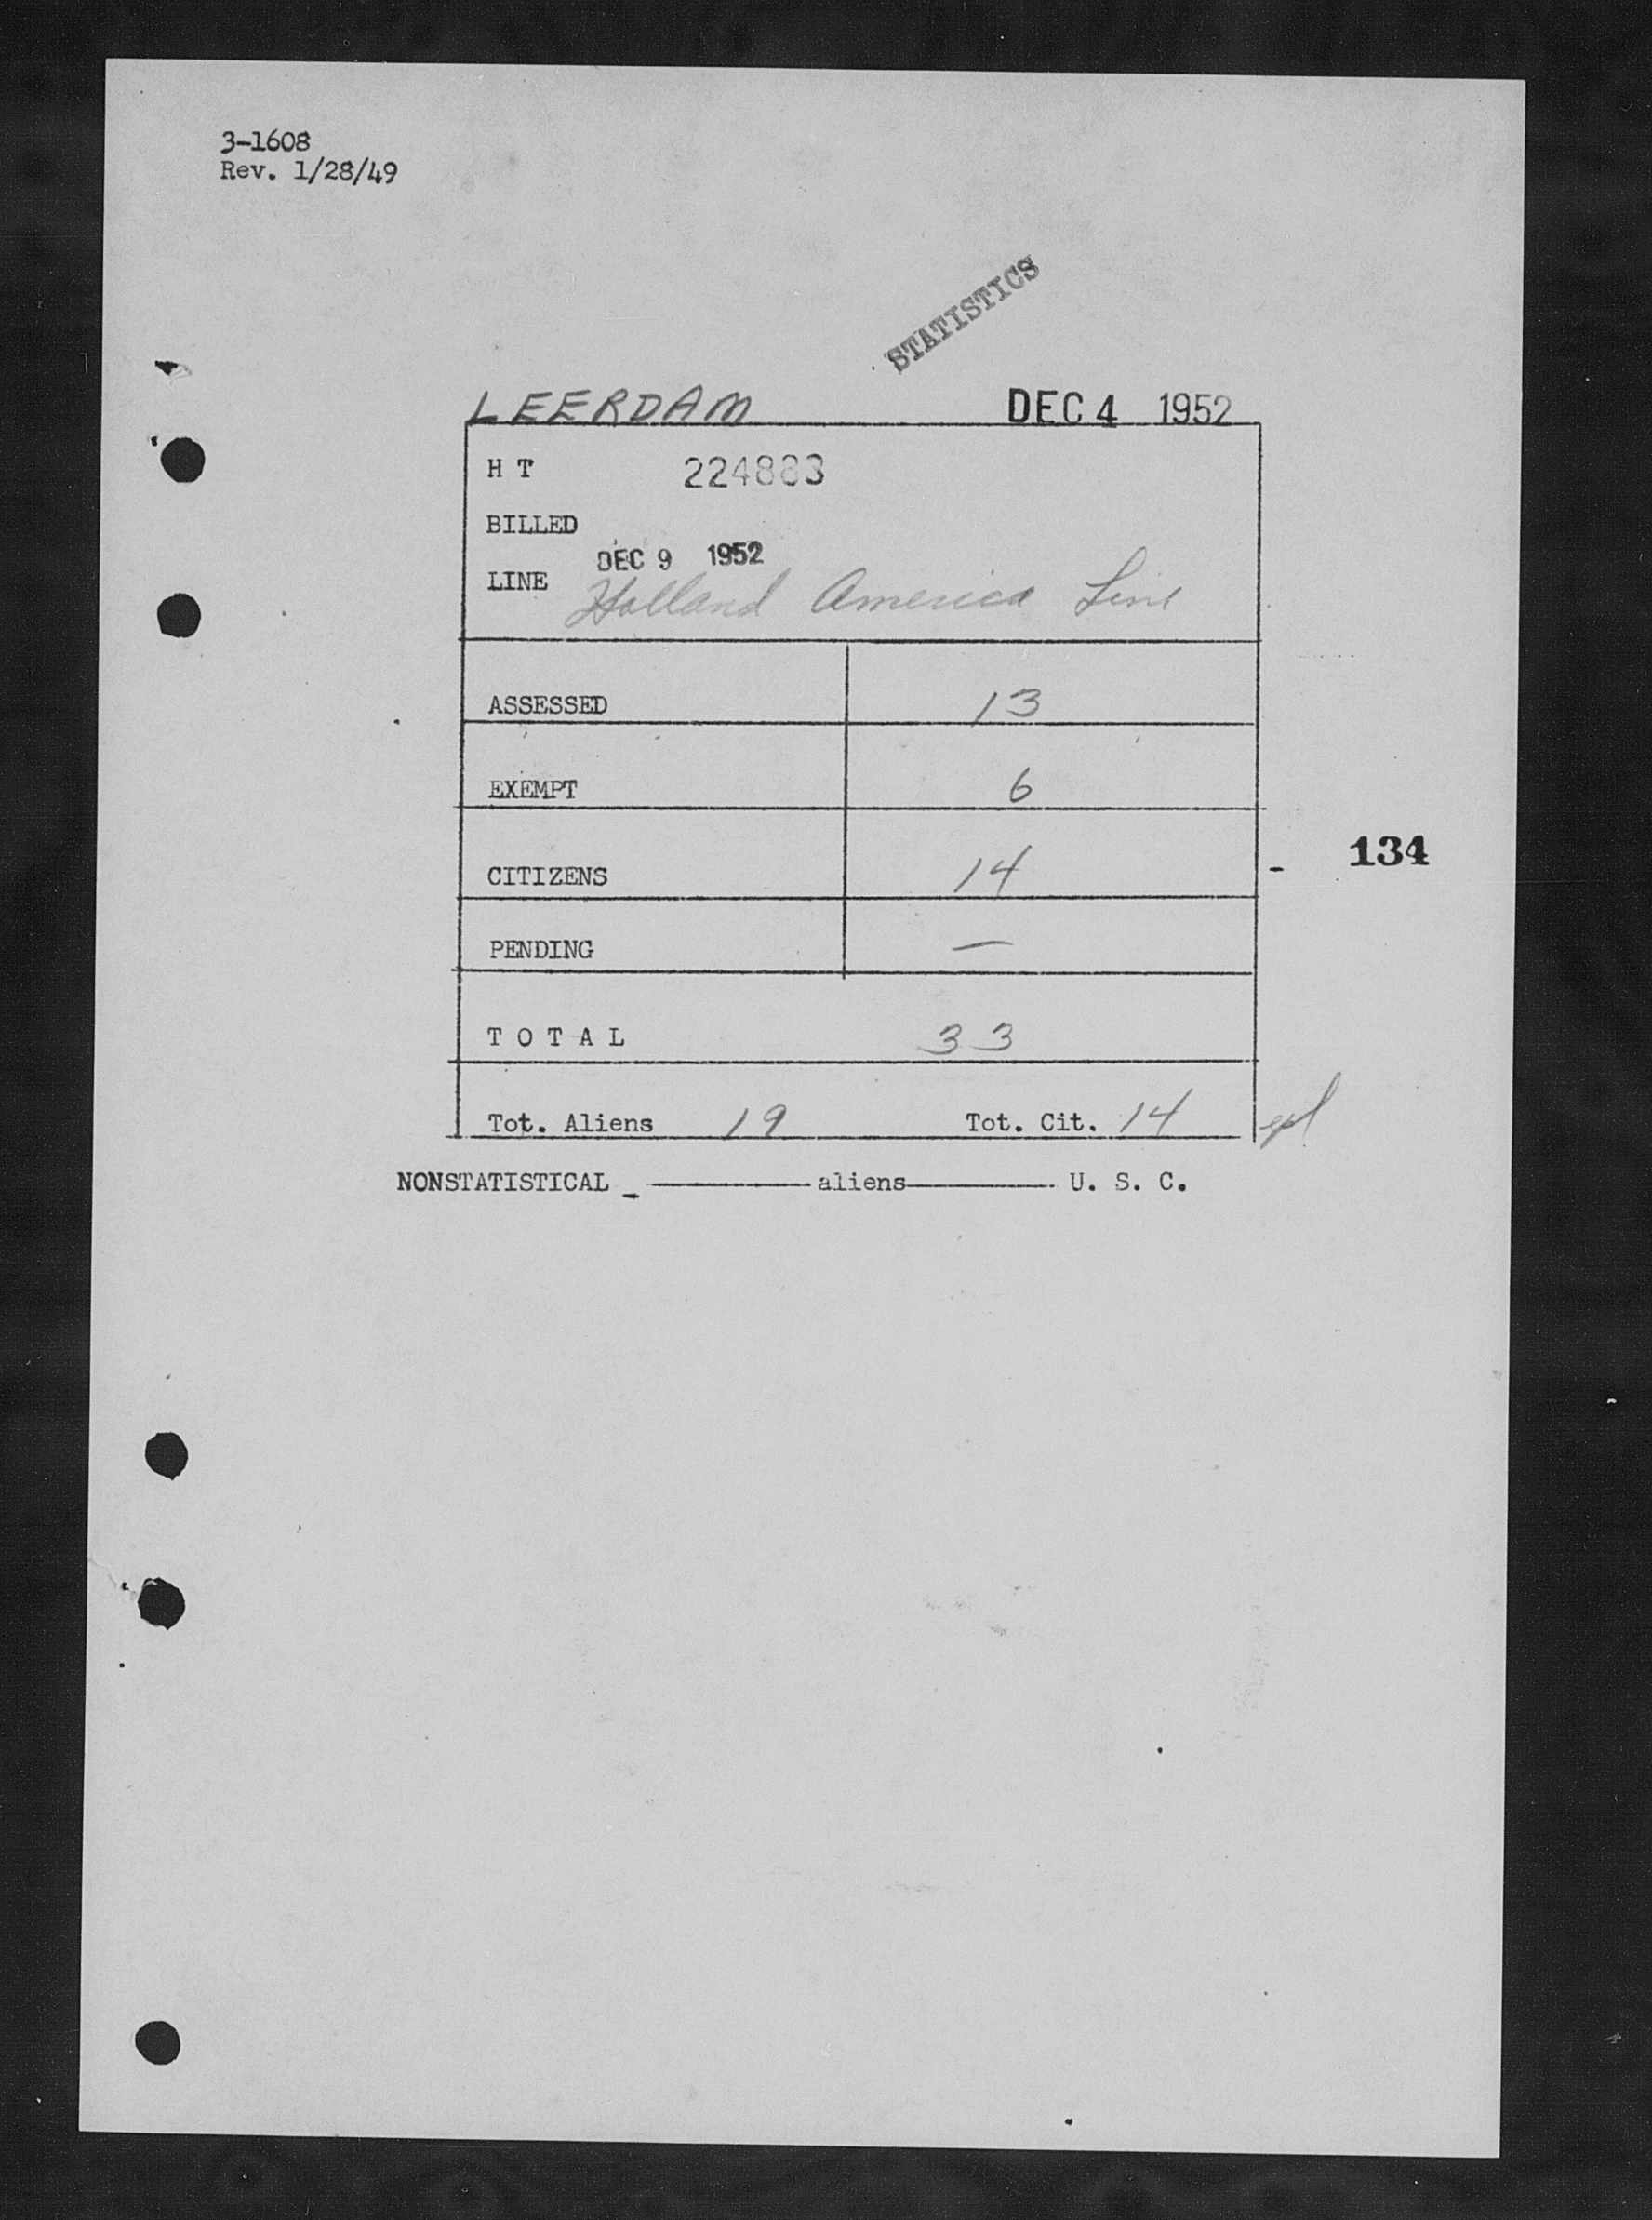 3-1608
Rev. 1/28/49
STATISTICS
LEERDAM DEC 4 1952
H T 224883
BILLED
DEC 9 1952
LINE Holland America Line
ASSESSED 13
EXEMPT 6
CITIZENS 14
134
PENDING —
T O T A L 33
Tot. Aliens 19 Tot. Cit. 14
NONSTATISTICAL aliens U. S. C.